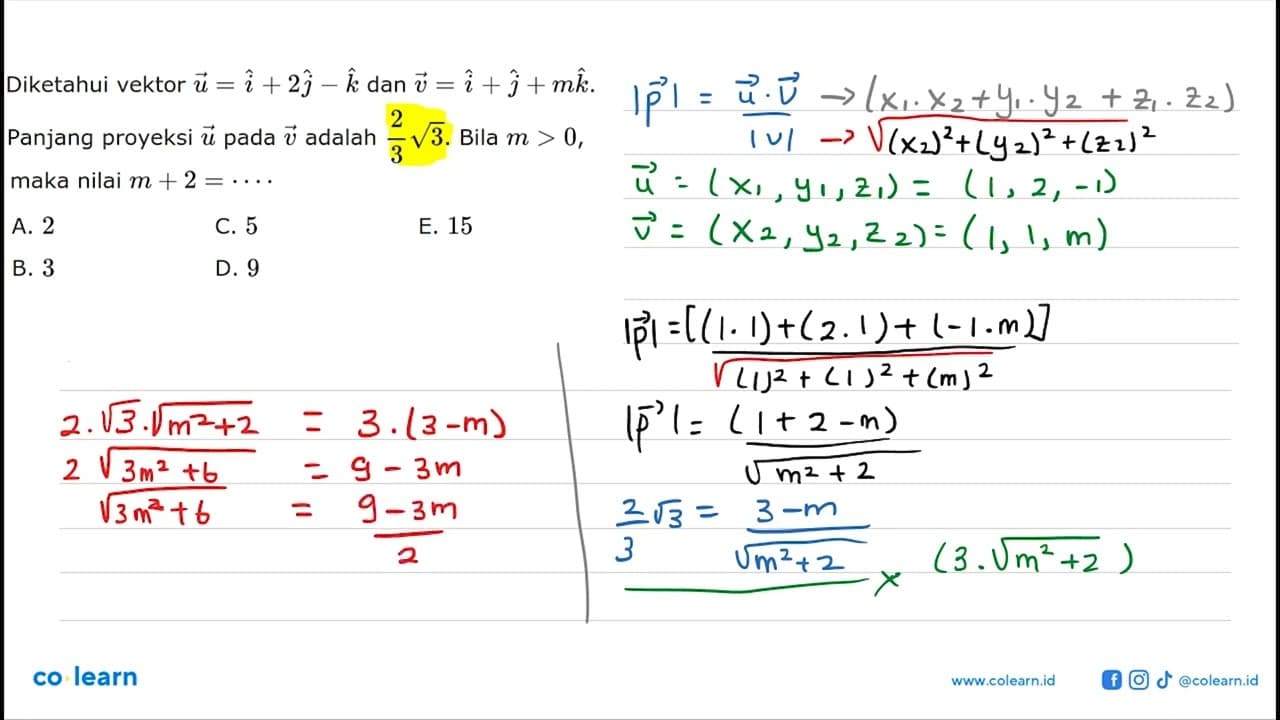 Diketahui vektor $\vec{u} = \hat{i} + 2\hat{j} - \hat{k}$ dan $\vec{v} = \hat{i} + \hat{j} + m\hat{k}$.
Panjang proyeksi $\vec{u}$ pada $\vec{v}$ adalah $\frac{2}{3}\sqrt{3}$. Bila $m > 0$,
maka nilai $m + 2 = \cdots\cdot$
A. 2 C. 5 E. 15
B. 3 D. 9
$|\vec{p}| = \frac{\vec{u} \cdot \vec{v}}{|v|} \rightarrow (x_1 . x_2 + y_1 . y_2 + z_1 . z_2)$
$\rightarrow \sqrt{(x_2)^2 + (y_2)^2 + (z_2)^2}$
$\vec{u} = (x_1, y_1, z_1) = (1, 2, -1)$
$\vec{v} = (x_2, y_2, z_2) = (1, 1, m)$
$|\vec{p}| = \frac{[(1.1) + (2.1) + (-1.m)]}{\sqrt{(1)^2 + (1)^2 + (m)^2}}$
$|\vec{p}| = \frac{(1 + 2 - m)}{\sqrt{m^2 + 2}}$
$\frac{2}{3}\sqrt{3} = \frac{3 - m}{\sqrt{m^2 + 2}}$ × $(3 . \sqrt{m^2 + 2})$
$2 . \sqrt{3} . \sqrt{m^2 + 2} = 3 . (3 - m)$
$2 \sqrt{3m^2 + 6} = 9 - 3m$
$\sqrt{3m^2 + 6} = \frac{9 - 3m}{2}$
co learn
www.colearn.id @colearn.id